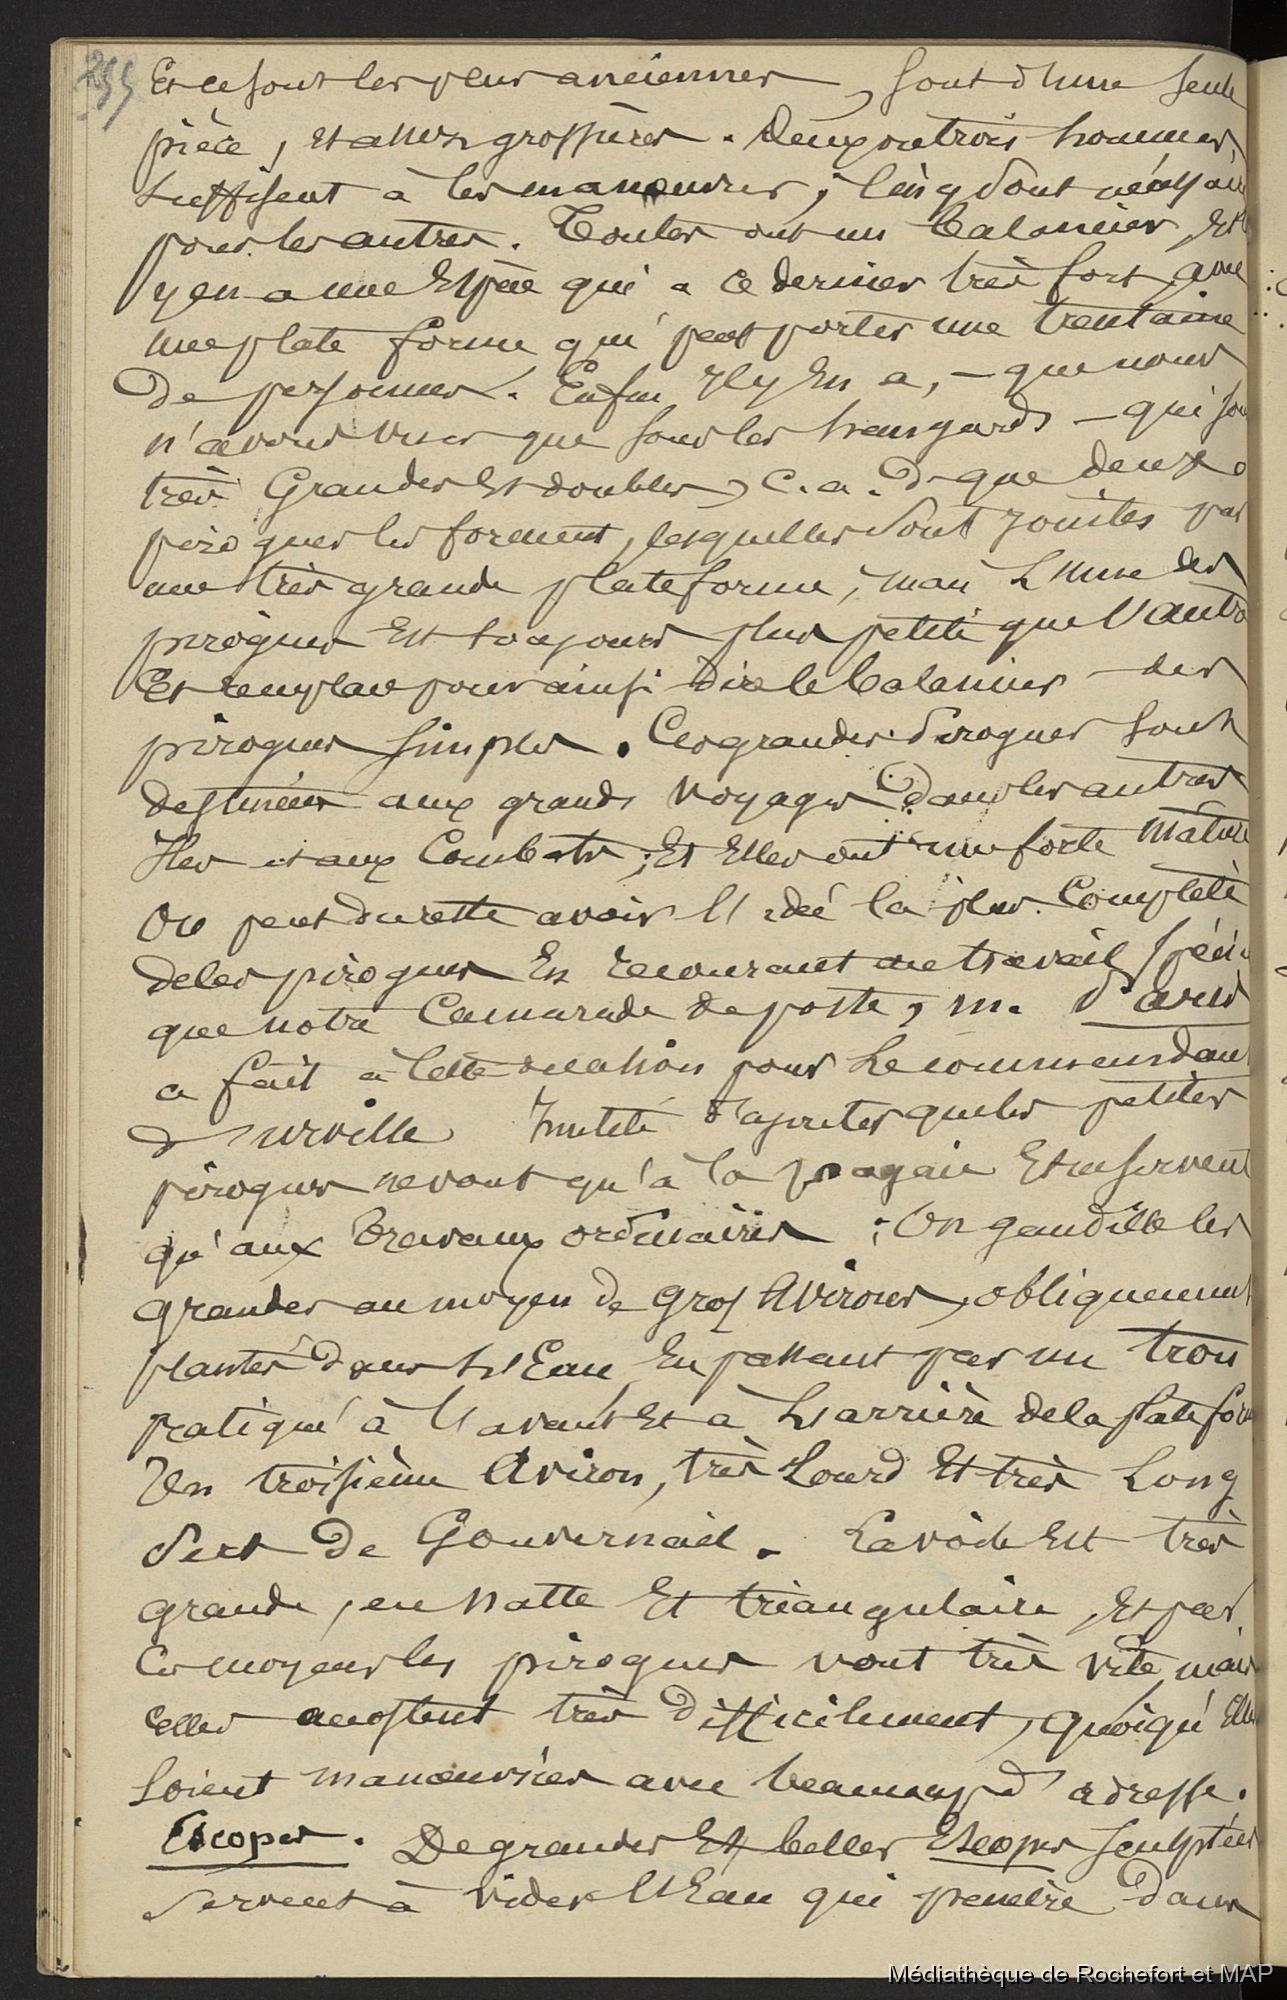 255
Et ce sont les plus anciennes, sont d'une seule
pièce, et assez grossières. Deux ou trois hommes
suffisent à les manoeuvrer; cinq sont nécessaires
pour les autres. Toutes ont un balancier, et il
y en a une Espèce qui a ce dernier très fort avec
une plate forme qui peut porter une trentaine
de personnes. Enfin Il y En a, - que nous
n'avons vues que sous les hangards - qui sont
très Grandes Et doubles, c. a. d. que deux
pirogues les forment, lesquelles sont jointes par
une très grande plateforme, mais L'une des
pirogues Est toujours plus petite que l'autre
Et remplace pour ainsi dire le balancier des
pirogues simples. Ces grandes pirogues sont
destinées aux grands voyages dans les autres
Iles et aux Combats; Et Elles ont une forte mâture
On peut du reste avoir l'idée la plus Complète
de les pirogues En recourant au travail spécial
que notre Camarade de poste, m.
a fait à cette occasion pour Le commandant
d'urville Inutile d'ajouter que les petites
pirogues ne vont qu'à la pagaie Et ne servent
qu'aux travaux ordinaires; On gaudille les
grandes au moyen de gros Avirons, obliquement
plantés dans L'Eau En passant par un trou
pratiqué à l'avant Et à L'arrière de la plateforme
Un troisième Aviron, très Lourd Et très Long
sert de Gouvernail. La voile Est très
grande, en natte Et triangulaire, Et par
ce moyen les pirogues vont très vite, mais
elles accostent très difficilement, quoiqu'Elles
soient manoeuvrées avec beaucoup d'adresse.
Escopes. De grandes Et belles Escopes sculptées
servent à vider l'Eau qui pénètre dans
Médiathèque de Rochefort et MAP